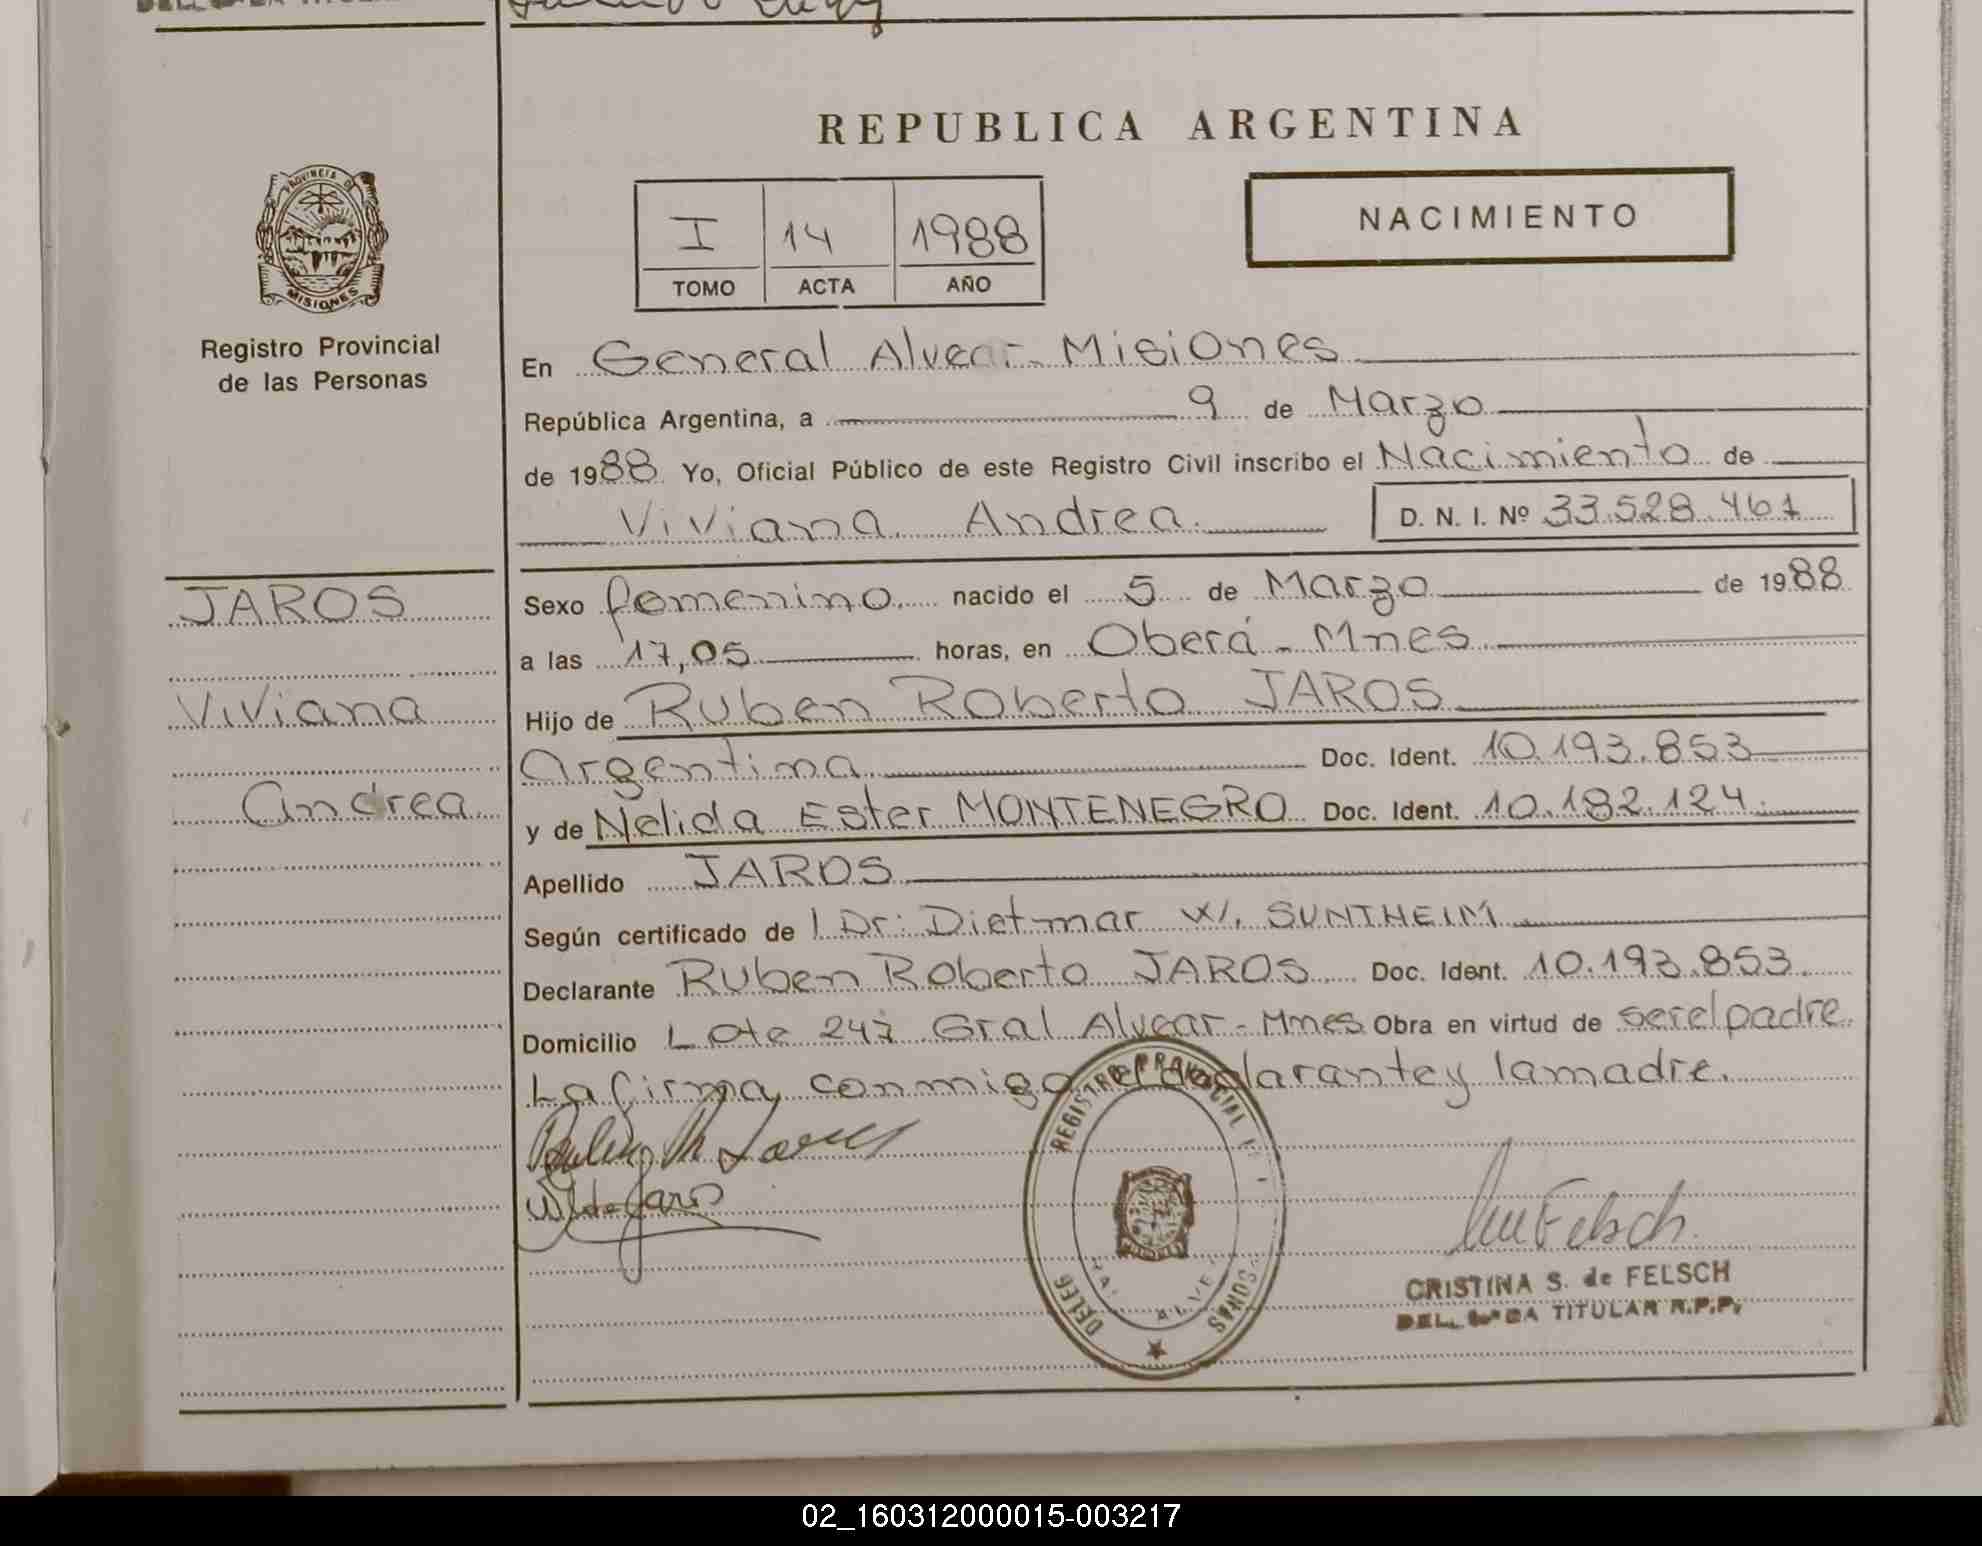 REPUBLICA ARGENTINA
NACIMIENTO
I 14 1988
TOMO ACTA AÑO
PROVINCIA DE
MISIONES
Registro Provincial
de las Personas
En General Alvear - Misiones
República Argentina, a 9 de Marzo
de 1988 Yo, Oficial Público de este Registro Civil inscribo el Nacimiento de
Viviana Andrea D. N. I. Nº 33.528.461
JAROS
Viviana
Andrea
Sexo femenino nacido el 5 de Marzo de 1988
a las 17,05 horas, en Oberá - Mnes
Hijo de Ruben Roberto JAROS
Argentina Doc. Ident. 10.193.853
y de Nelida Ester MONTENEGRO Doc. Ident. 10.182.124
Apellido JAROS
Según certificado de Dr: Dietmar W. SUNTHEIM
Declarante Ruben Roberto JAROS Doc. Ident. 10.193.853
Domicilio Lote 247 Gral Alvear - Mnes Obra en virtud de ser el padre.
La firma conmigo el declarante y la madre.
REGISTRO PROVINCIAL
CRISTINA S. de FELSCH
TITULAR R.P.P.
02_160312000015-003217